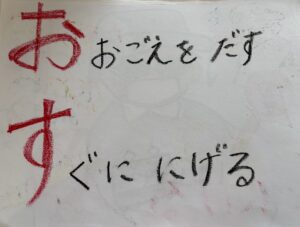 おおごえを だす
すぐに にげる